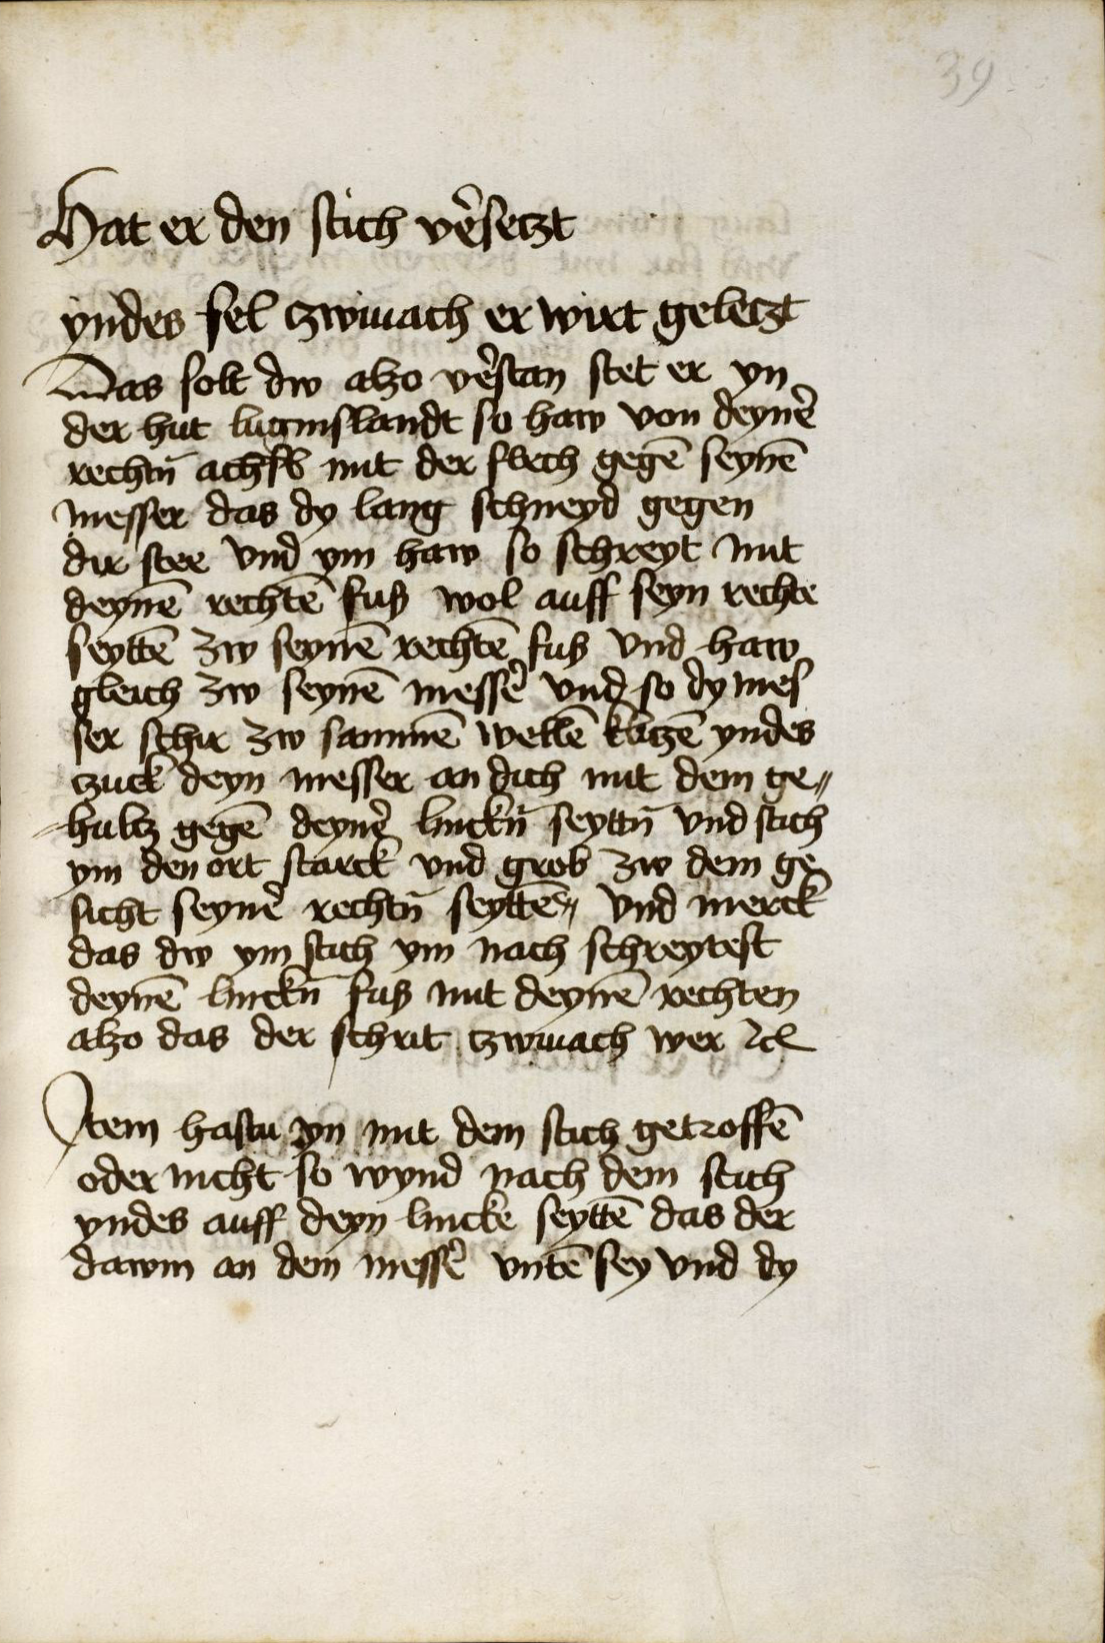 39
Hat er den stich v̾setzt
yndes fel zwinach er wirt geletzt
Das solt dw alzo v̾stan stet er yn
der hut luginslandt so haw von deyn̾
rechtn̄ achsl mit der flech gegē seynē
messer das dy lang schneyd gegen
dir stee vnd ym haw so schreyt mit
deynē rechtē fuß wol auff seyn rechte
seyttē zw seynē rechtē fuß vnd haw
gleich zw seynē mess̾ vnd so dy mes
ser schir zw sammē wellē klitzē yndes
zuck deyn messer an dich mit dem ge〃
〃hultz gegē deyn̾ linckn̄ seyttn̄ vnd stich
ym den ort starck vnd grob zw dem ge
sicht seyn̾ rechtn̄ seyttē〃 vnd merck
das dw ym stich ym nach schreytest
deynē linckn̄ fuß mit deynē rechten
alzo das der schrit zwinach wer ꝛc
Item hastu yn mit dem stich getroffē
oder nicht so wynd nach dem stich
yndes auff deyn lincke seyttē das der
dawm an dem mess̾ vntē sey vnd dy